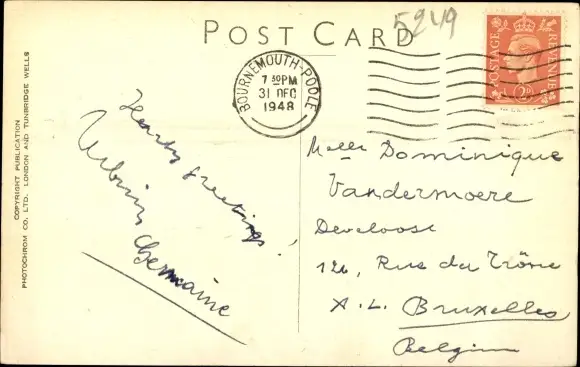 5249
POST CARD
POSTAGE
REVENUE
2D
BOURNEMOUTH-POOLE
7 30PM
31 DEC
1948
COPYRIGHT PUBLICATION
PHOTOCHROM CO. LTD. LONDON AND TUNBRIDGE WELLS
Hearty greetings!
Germaine
Melle Dominique
Vandermoere
Develoose
126, Rue du Trône
X.L. Bruxelles
Belgium